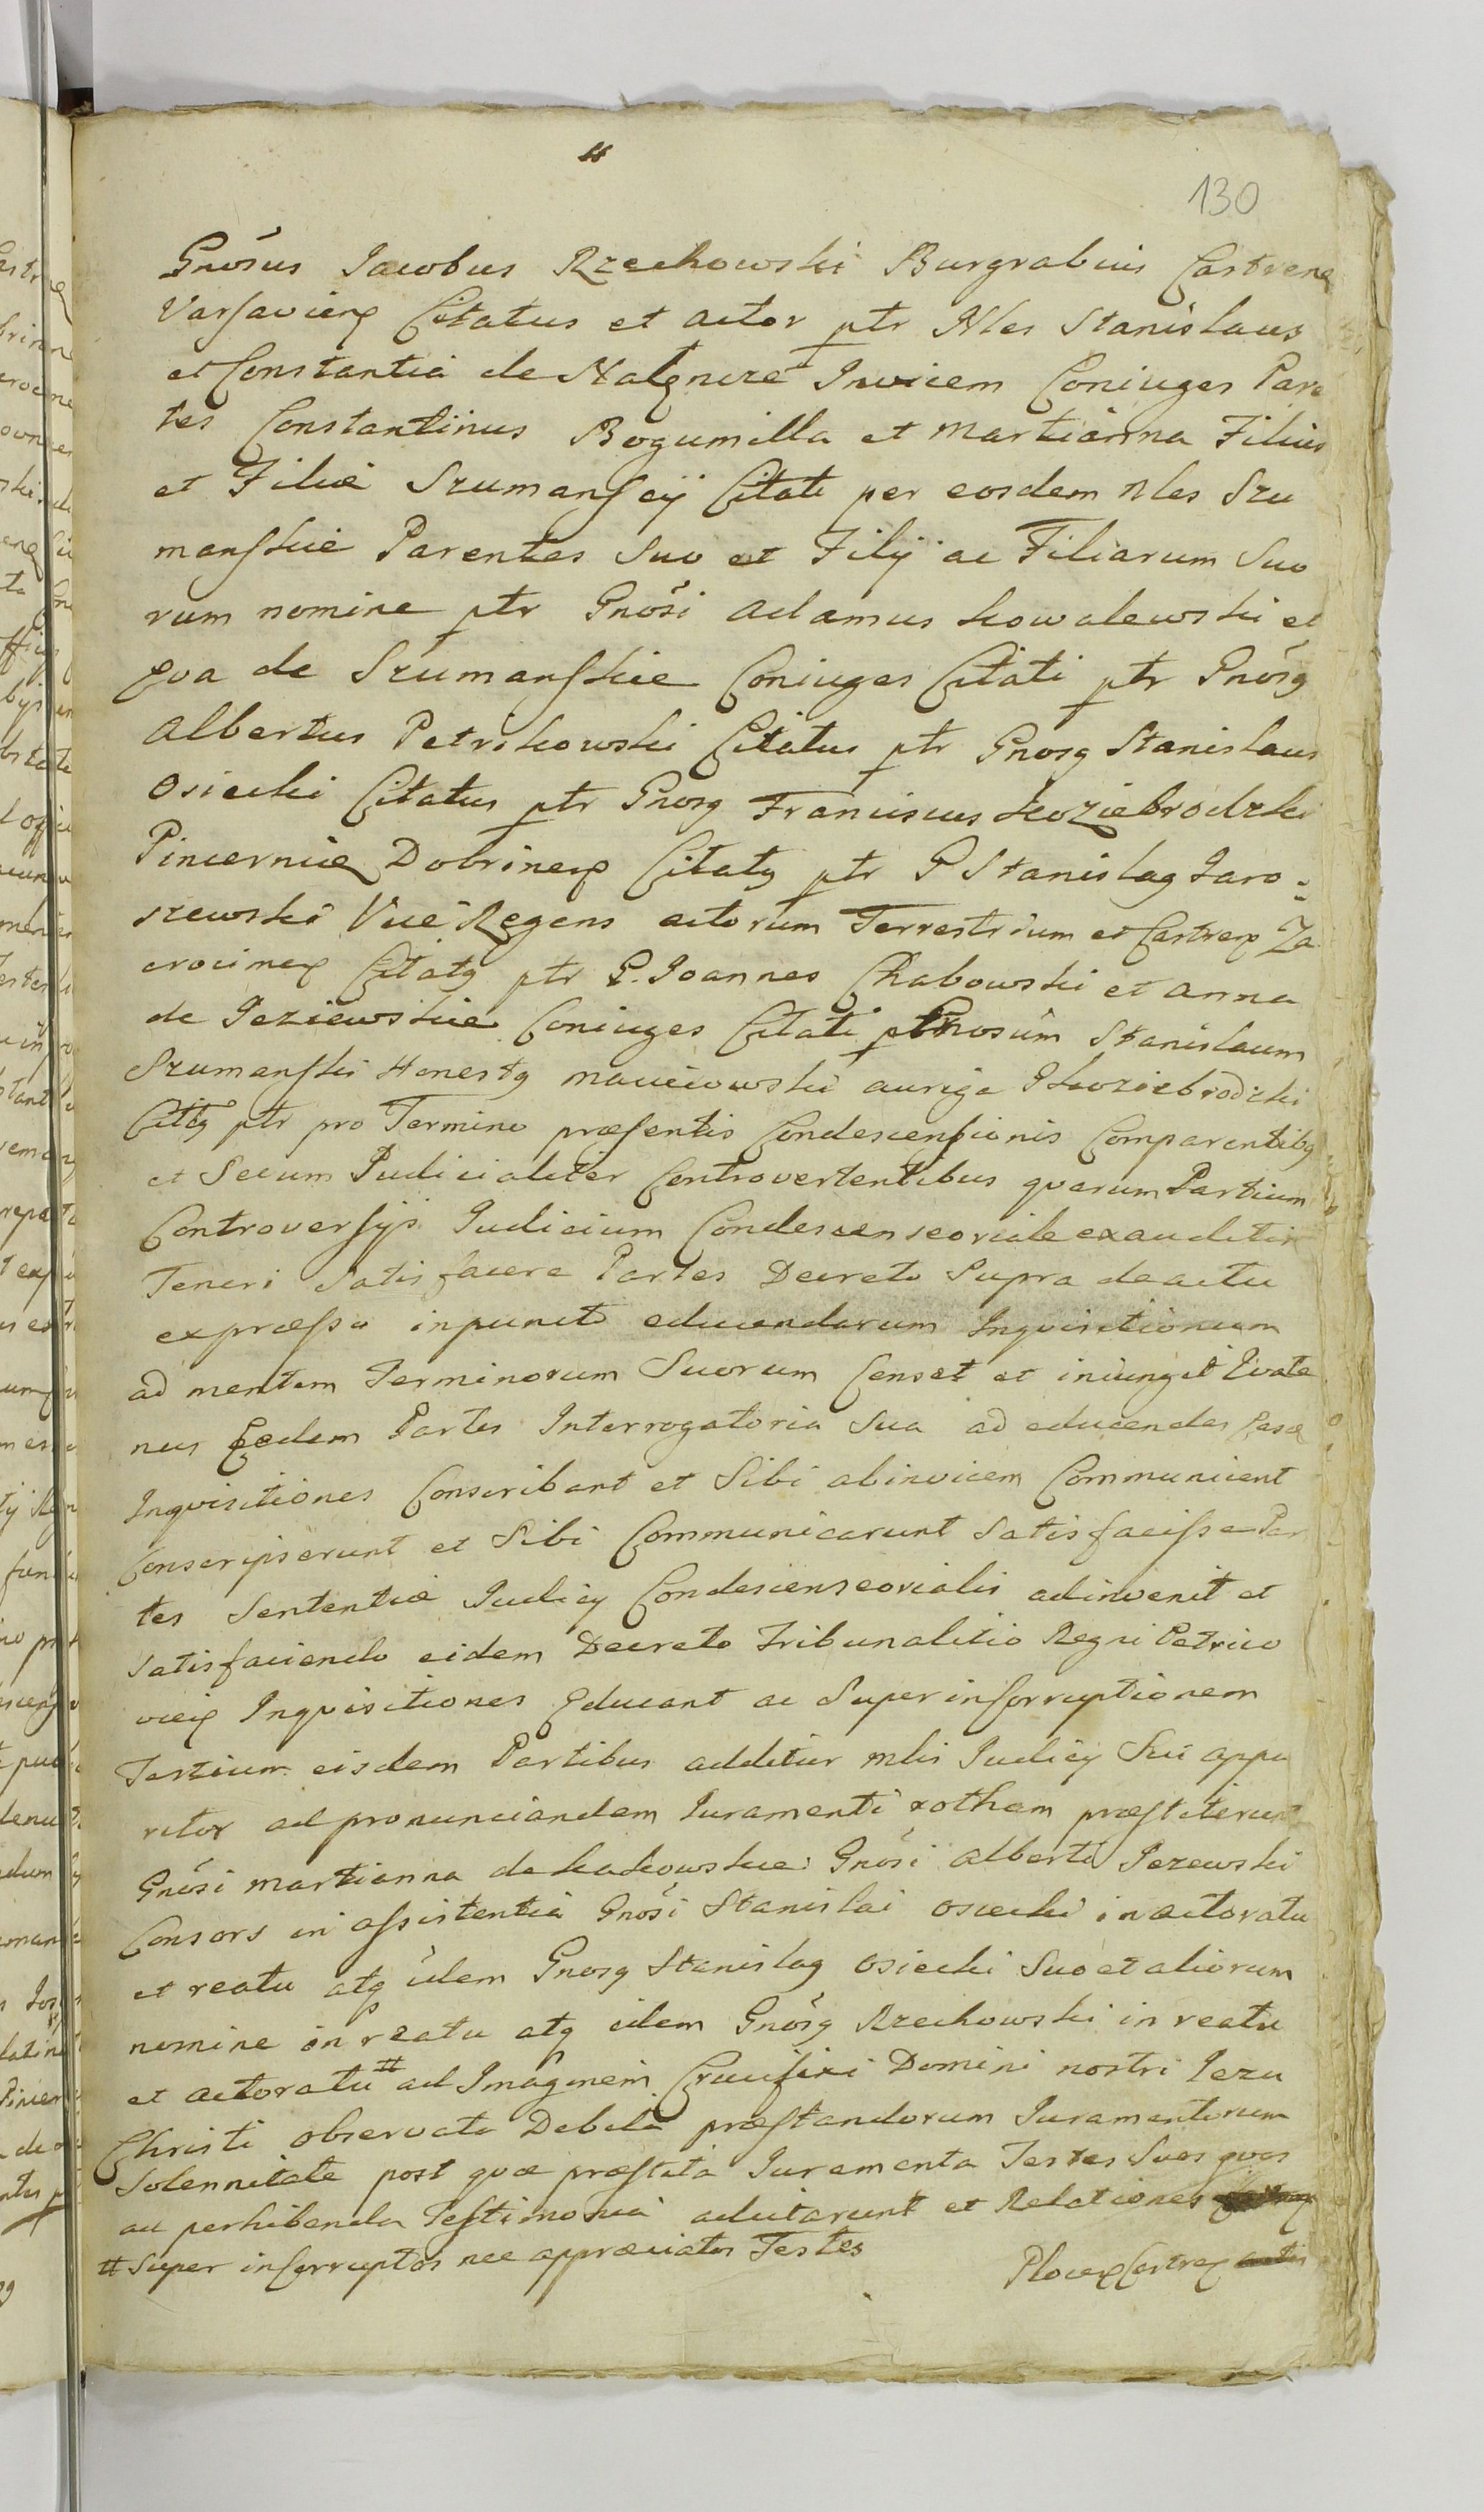 130
Gnosus Jacobus Rzechowski Burgrabius Castrens
Varsaviens Citatus et actor ptr Nles Stanislaus
et Constantia de Invicem Coniuges Paren
tes Constantinus Bogumilla et Martianna Filius
et Filiæ Szumanscÿ Citati per eosdem Nles Szu
manskie Parentes Suo et Filÿ ac Filiarum Suo
rum nomine ptr Gnosi Adamus Kowalewski et
Eva de Szumanskie Coniuges Citati ptr Gnosg
Albertus Petrikowski Citatus ptr Gnosg Stanislaus
Osiecki Citatus ptr Gnosg Franciscus Koziebrodzki
Pincernie Dobrinens Citatg ptr G Stanislag Jaro=
szewski Vice Regens actorum Terrestrium et Castrens Za
crocimens Citatg ptr G. Joannes Chabowski et Anna
de Jeziewskie Coniuges Citati ptr Gnosum Stanislaum
Szumanski Honestg Maciejowski auriga Koziebrodzki
Citatg ptr pro Termino præsentis Condescensionis Comparentibg
et Secum Judicialiter Controvertentibus quarum Partium
Controversÿs Judicium Condescenseoriale exauditis
Teneri Satisfacere Partes Decreto Supra de actu
expræsso in puncto educendarum Inquisitionum
ad mentem Terminorum Suorum Censet et iniungit Quate
nus Eædem Partes Interrogatoria Sua ad educendas easd
Inquisitiones Conscribant et Sibi abinvicem Communicent
Conscripserunt et Sibi Communicarunt Satisfacisse Par
tes Sententiæ Judicÿ Condescenseorialis adinvenit et
Satisfaciendo eidem Decreto Tribunalitio Regni Petrico
viens Inquisitiones Educant ac Super inscriptionem
Testium eisdem Partibus additur mlis Judicÿ Sui appa
ritor ad pronunciandam Juramenti rotham præstiterunt
Gnosi Martianna de Kakowskie Gnosi Alberti Jezewski
Consors in assistentia Gnosi Stanislai Osiecki in actoratu
et reatu atq idem Gnosg Stanislag Osiecki Suo et aliorum
nomine in reatu atq idem Gnosg Rzechowski in reatu
et actoratu # ad Imaginem Crucifixi Domini nostri Jezu
Christi observata Debita præstandorum Juramentorum
Solennitate post quæ præstita Juramenta Testes Suos quos
ad perhibenda Testimonia adcitarunt et Relationes
# Super inscorruptos nec appræciatos Testes
Plocens Castrens